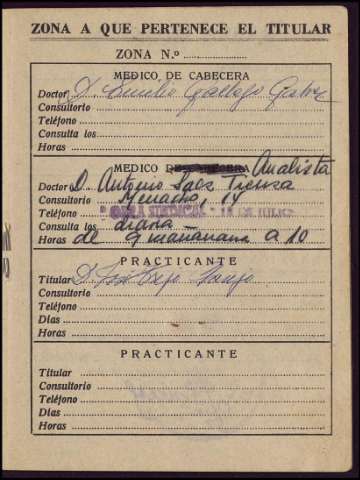 ZONA A QUE PERTENECE EL TITULAR
ZONA N.º
MEDICO DE CABECERA
Doctor D. Emilio Gallego
Consultorio
Teléfono
Consulta los
Horas
MEDICO DE CABECERA Analista
Doctor D. Antonio Saez
Consultorio Menacho, 14
Teléfono "OBRA SINDICAL 18 DE JULIO"
Consulta los diaria -
Horas de 9 mañana a 10
PRACTICANTE
Titular D. José
Consultorio
Teléfono
Días
Horas
PRACTICANTE
Titular
Consultorio
Teléfono
Días
Horas